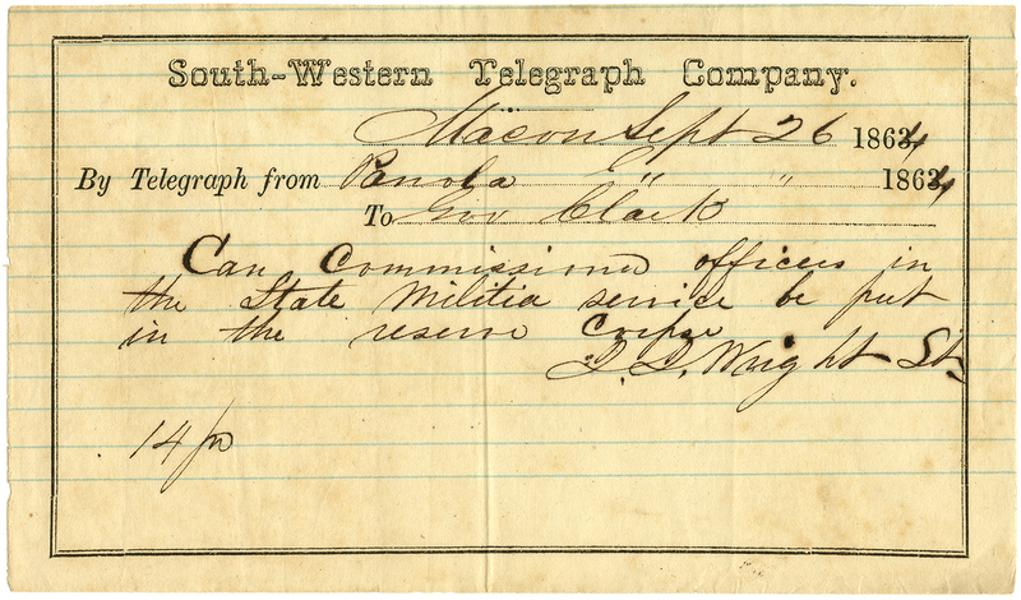 South-Western Telegraph Company.
Macon Sept 26 1864
By Telegraph from Panola " " 1864
To Gov Clark
Can Commissioned officers in
the State Militia service be put
in the reserve Corps
Wright
14